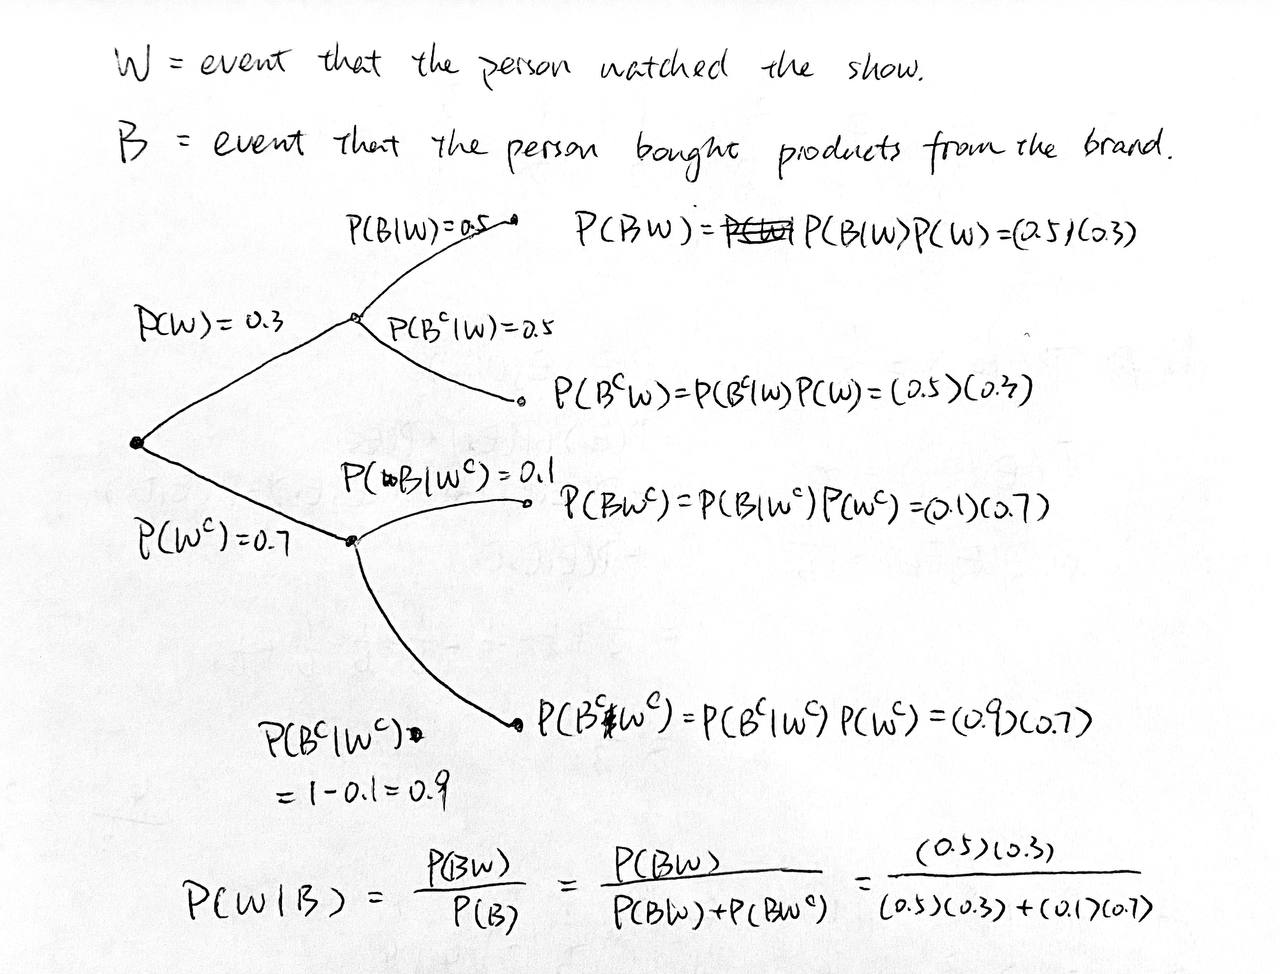 W = event that the person watched the show.
B = event that the person bought products from the brand.
P(B|W)=0.5
P(BW) = P(B|W)P(W) =(0.5)(0.3)
P(W) = 0.3
P(Bᶜ|W)=0.5
P(BᶜW)=P(Bᶜ|W)P(W) = (0.5)(0.3)
P(B|Wᶜ) = 0.1
P(BWᶜ) = P(B|Wᶜ)P(Wᶜ) =(0.1)(0.7)
P(Wᶜ)=0.7
P(BᶜWᶜ) = P(Bᶜ|Wᶜ) P(Wᶜ) = (0.9)(0.7)
P(Bᶜ|Wᶜ)
= 1-0.1 = 0.9
P(W|B) = P(BW)/P(B) = P(BW)/(P(BW)+P(BWᶜ)) = (0.5)(0.3)/((0.5)(0.3)+(0.1)(0.7))